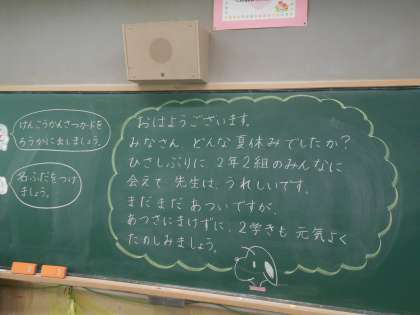 けんこうかんさつカードを
ろうかに出しましょう。
名ふだをつけ
ましょう。
おはようございます。
みなさん どんな夏休みでしたか？
ひさしぶりに 2年2組のみんなに
会えて 先生は、うれしいです。
まだまだ あついですが、
あつさにまけずに、2学きも 元気よく
たのしみましょう。